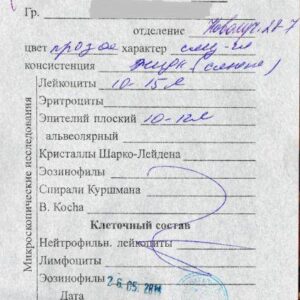 Гр.
отделение
цвет прозр характер слиз-гн
консистенция жидк (слюна)
Лейкоциты 10-15
Эритроциты
Эпителий плоский 10-12
альвеолярный
Кристаллы Шарко-Лейдена
Эозинофилы
Спирали Куршмана
В. Kocha
Клеточный состав
Нейтрофильн. лейкоциты
Лимфоциты
Эозинофилы
Дата 26.05.2011
Микроскопические исследования